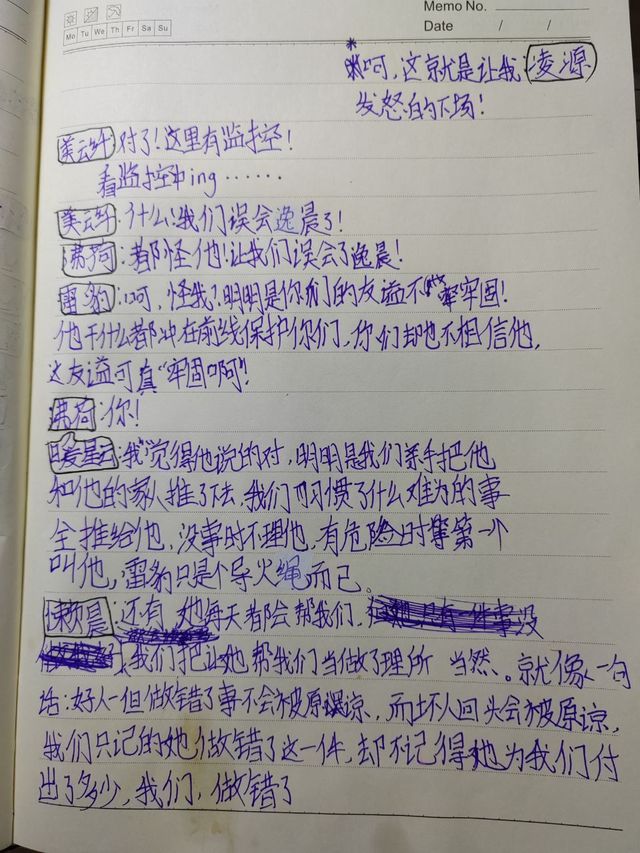 Memo No.
Mo Tu We Th Fr Sa Su
Date / /
呵,这就是让我凌源
发怒的下场!
美云纤:对了!这里有监控!
看监控中ing……
美云纤:什么!我们误会逸晨了!
沸荷:都怪他!让我们误会了逸晨!
雷豹:呵,怪我?明明是你们的友谊不牢固!
他干什么都冲在前线保护你们,你们却也不相信他,
这友谊可真“牢固啊”!
沸荷:你!
暖星云:我觉得他说的对,明明是我们亲手把他
和他的家人推了下去,我们习惯了什么难为的事
全推给他,没事时不理他,有危险时第一个
叫他,雷豹只是个导火绳而已。
懒晨:还有,她每天都会帮我们,
我们把让她帮我们当做了理所当然、。就像一句
话:好人一但做错了事不会被原谅,而坏人回头会被原谅,
我们只记的她做错了这一件,却不记得她为我们付
出了多少,我们,做错了